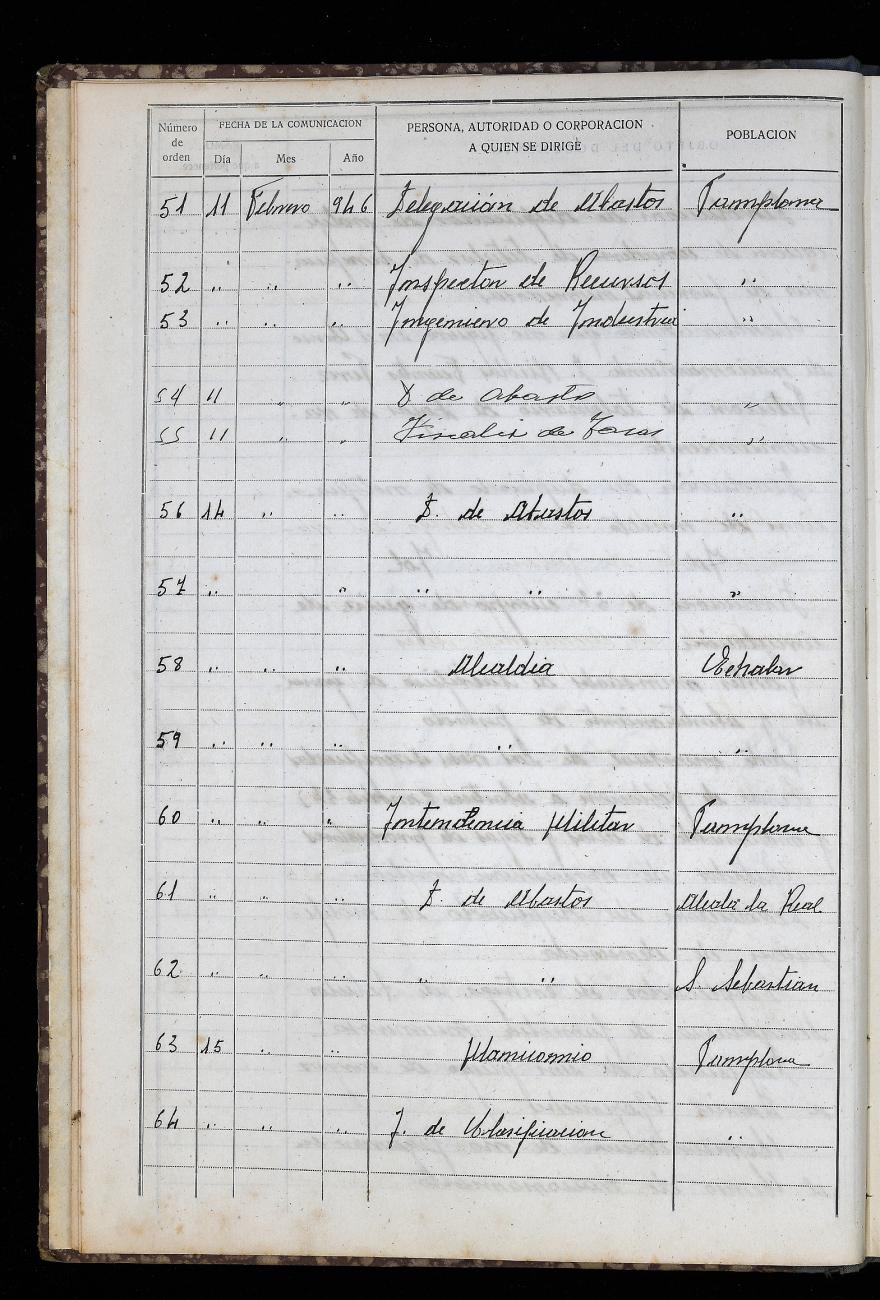 Número de orden FECHA DE LA COMUNICACION PERSONA, AUTORIDAD O CORPORACION A QUIEN SE DIRIGE POBLACION
Día Mes Año
51 11 Febrero 946 Delegación de Abastos Pamplona
52 " " " Inspector de Recursos "
53 " " " Ingeniero de Industria "
54 11 " " D de Abastos "
55 11 " " Fiscalia de Tasas "
56 14 " " D. de Abastos "
57 " " " " "
58 " " " Alcaldia Echalar
59 " " " " "
60 " " " Intendencia Militar Pamplona
61 " " " D. de Abastos Alcalá la Real
62 " " " " " S. Sebastian
63 15 " " Manicomio Pamplona
64 " " " J. de Clasificacion "